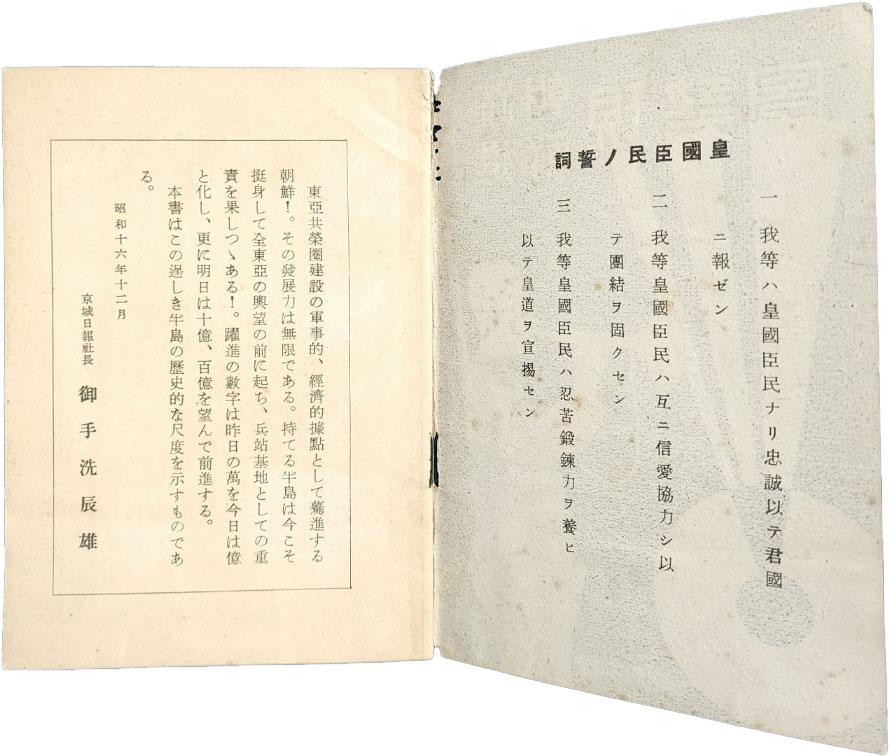 皇國臣民ノ誓詞
一 我等ハ皇國臣民ナリ忠誠以テ君國
ニ報ゼン
二 我等皇國臣民ハ互ニ信愛協力シ以
テ團結ヲ固クセン
三 我等皇國臣民ハ忍苦鍛鍊力ヲ養ヒ
以テ皇道ヲ宣揚セン
東亞共榮圈建設の軍事的、經濟的據點として驀進する
朝鮮!。その發展力は無限である。持てる半島は今こそ
挺身して全東亞の輿望の前に起ち、兵站基地としての重
責を果しつゝある!。躍進の數字は昨日の萬を今日は億
と化し、更に明日は十億、百億を望んで前進する。
本書はこの逞しき半島の歷史的な尺度を示すものであ
る。
昭和十六年十二月
京城日報社長 御手洗辰雄